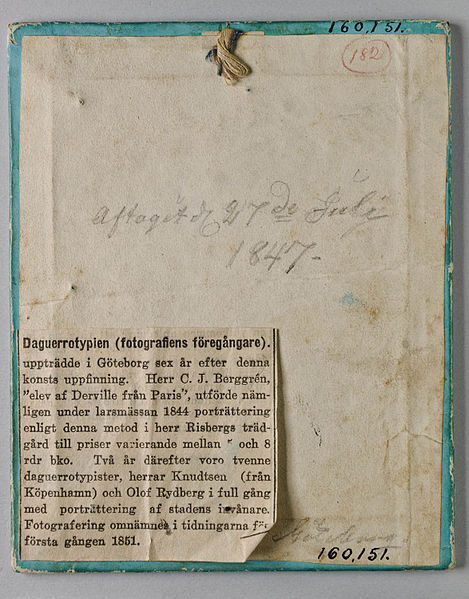 160,151.
182
Aftaget d 27de Juli
1847-
Daguerrotypien (fotografiens föregångare).
uppträdde i Göteborg sex år efter denna
konsts uppfinning. Herr C. J. Berggrén,
"elev af Derville från Paris", utförde näm-
ligen under larsmässan 1844 porträttering
enligt denna metod i herr Risbergs träd-
gård till priser varierande mellan och 8
rdr bko. Två år därefter voro tvenne
daguerrotypister, herrar Knudtsen (från
Köpenhamn) och Olof Rydberg i full gång
med porträttering af stadens invånare.
Fotografering omnämnes i tidningarna för
första gången 1851.
Göteborg.
160,151.